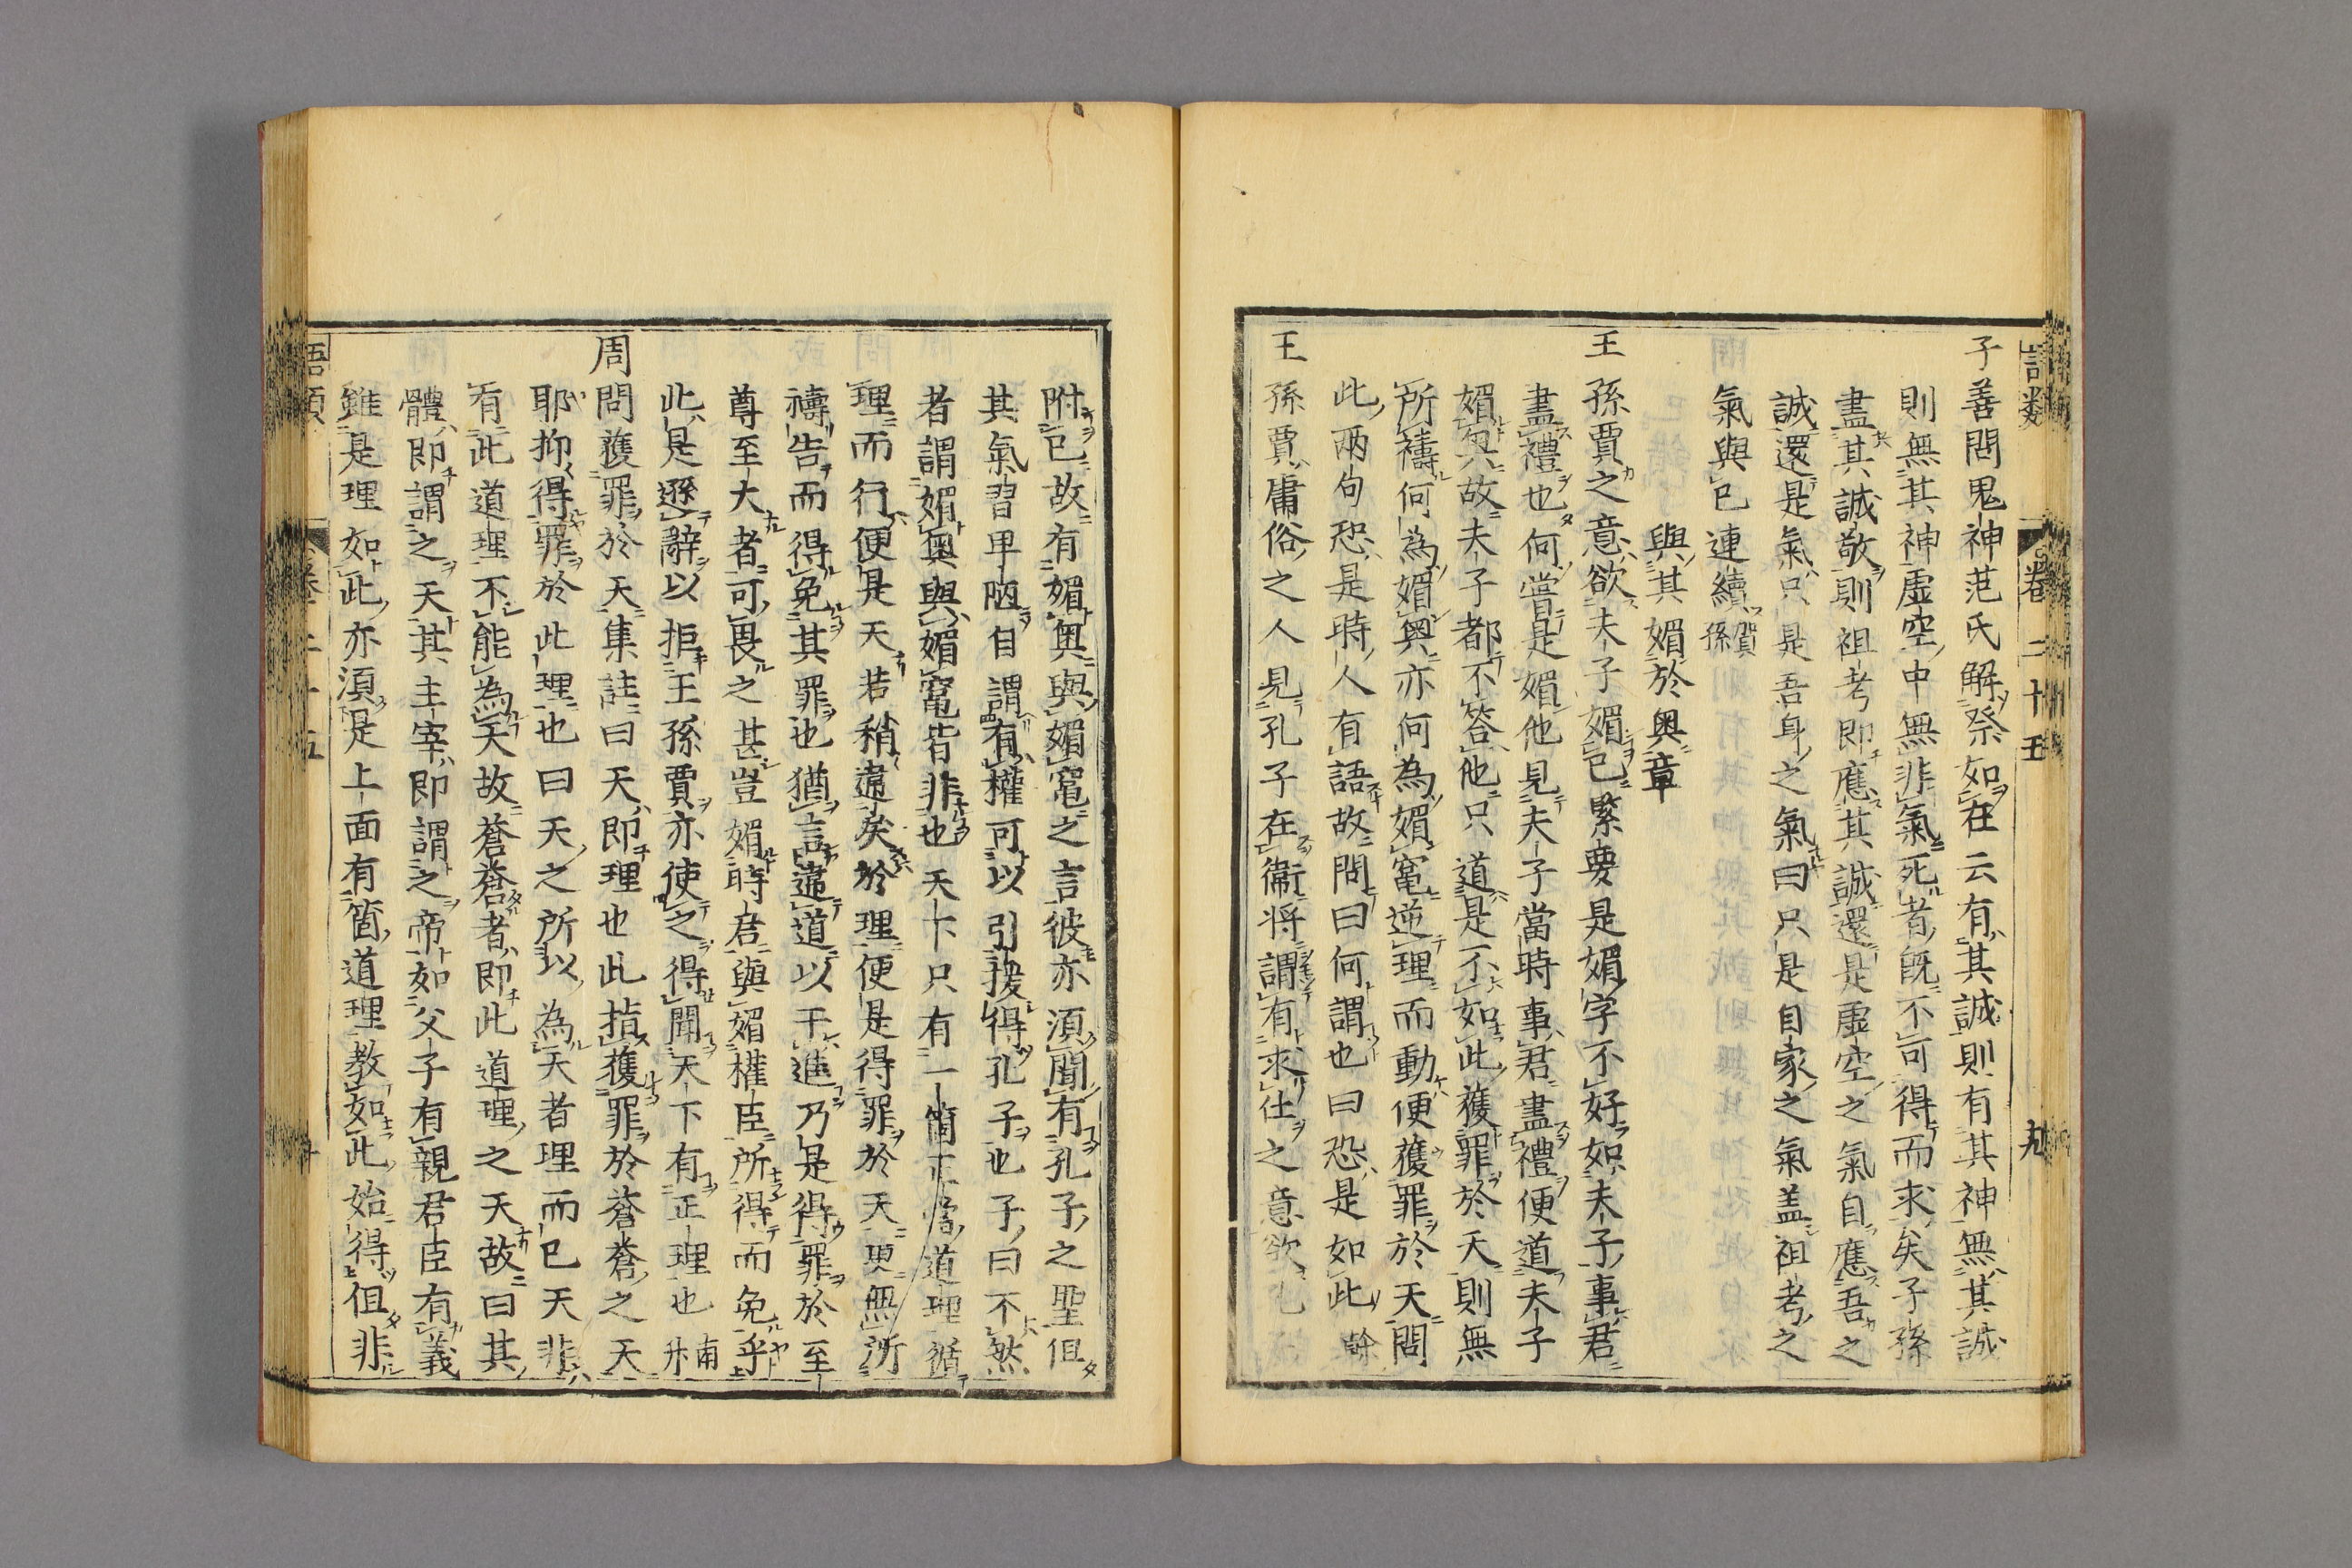 語類 卷二十五 九
子善問鬼神范氏解祭如在云有其誠則有其神無其誠
則無其神虛空中無非氣死者既不可得而求矣子孫
盡其誠敬則祖考即應其誠還是虛空之氣自應吾之
誠還是氣只是吾身之氣曰只是自家之氣盖祖考之
氣與已連續賀孫
與其媚於奥章
王孫賈之意欲夫子媚已緊要是媚字不好如夫子事君
盡禮也何嘗是媚他見夫子當時事君盡禮便道夫子
媚奥故夫子都不答他只道是不如此獲罪於天則無
所禱何為媚奥亦何為媚竃逆理而動便獲罪於天問
此兩句恐是時人有語故問曰何謂也曰恐是如此榦
王孫賈庸俗之人見孔子在衞将謂有求仕之意欲
附已故有媚奥與媚竃之言彼亦須聞有孔子之聖但
其氣習卑陋自謂有權可以引援得孔子也子曰不然
者謂媚奥與媚竃皆非也天下只有一箇正當道理循
理而行便是天若稍違戾於理便是得罪於天更無所
禱告而得免其罪也猶言違道以干進乃是得罪於至
尊至大者可畏之甚豈媚時君與媚權臣所得而免乎
此是遜辭以拒王孫賈亦使之得聞天下有正理也南升
周問獲罪於天集註曰天即理也此指獲罪於蒼蒼之天
耶抑得罪於此理也曰天之所以為天者理而已天非
有此道理不能為天故蒼蒼者即此道理之天故曰其
體即謂之天其主宰即謂之帝如父子有親君臣有義
雖是理如此亦須是上面有箇道理教如此始得但非
語類 卷二十五